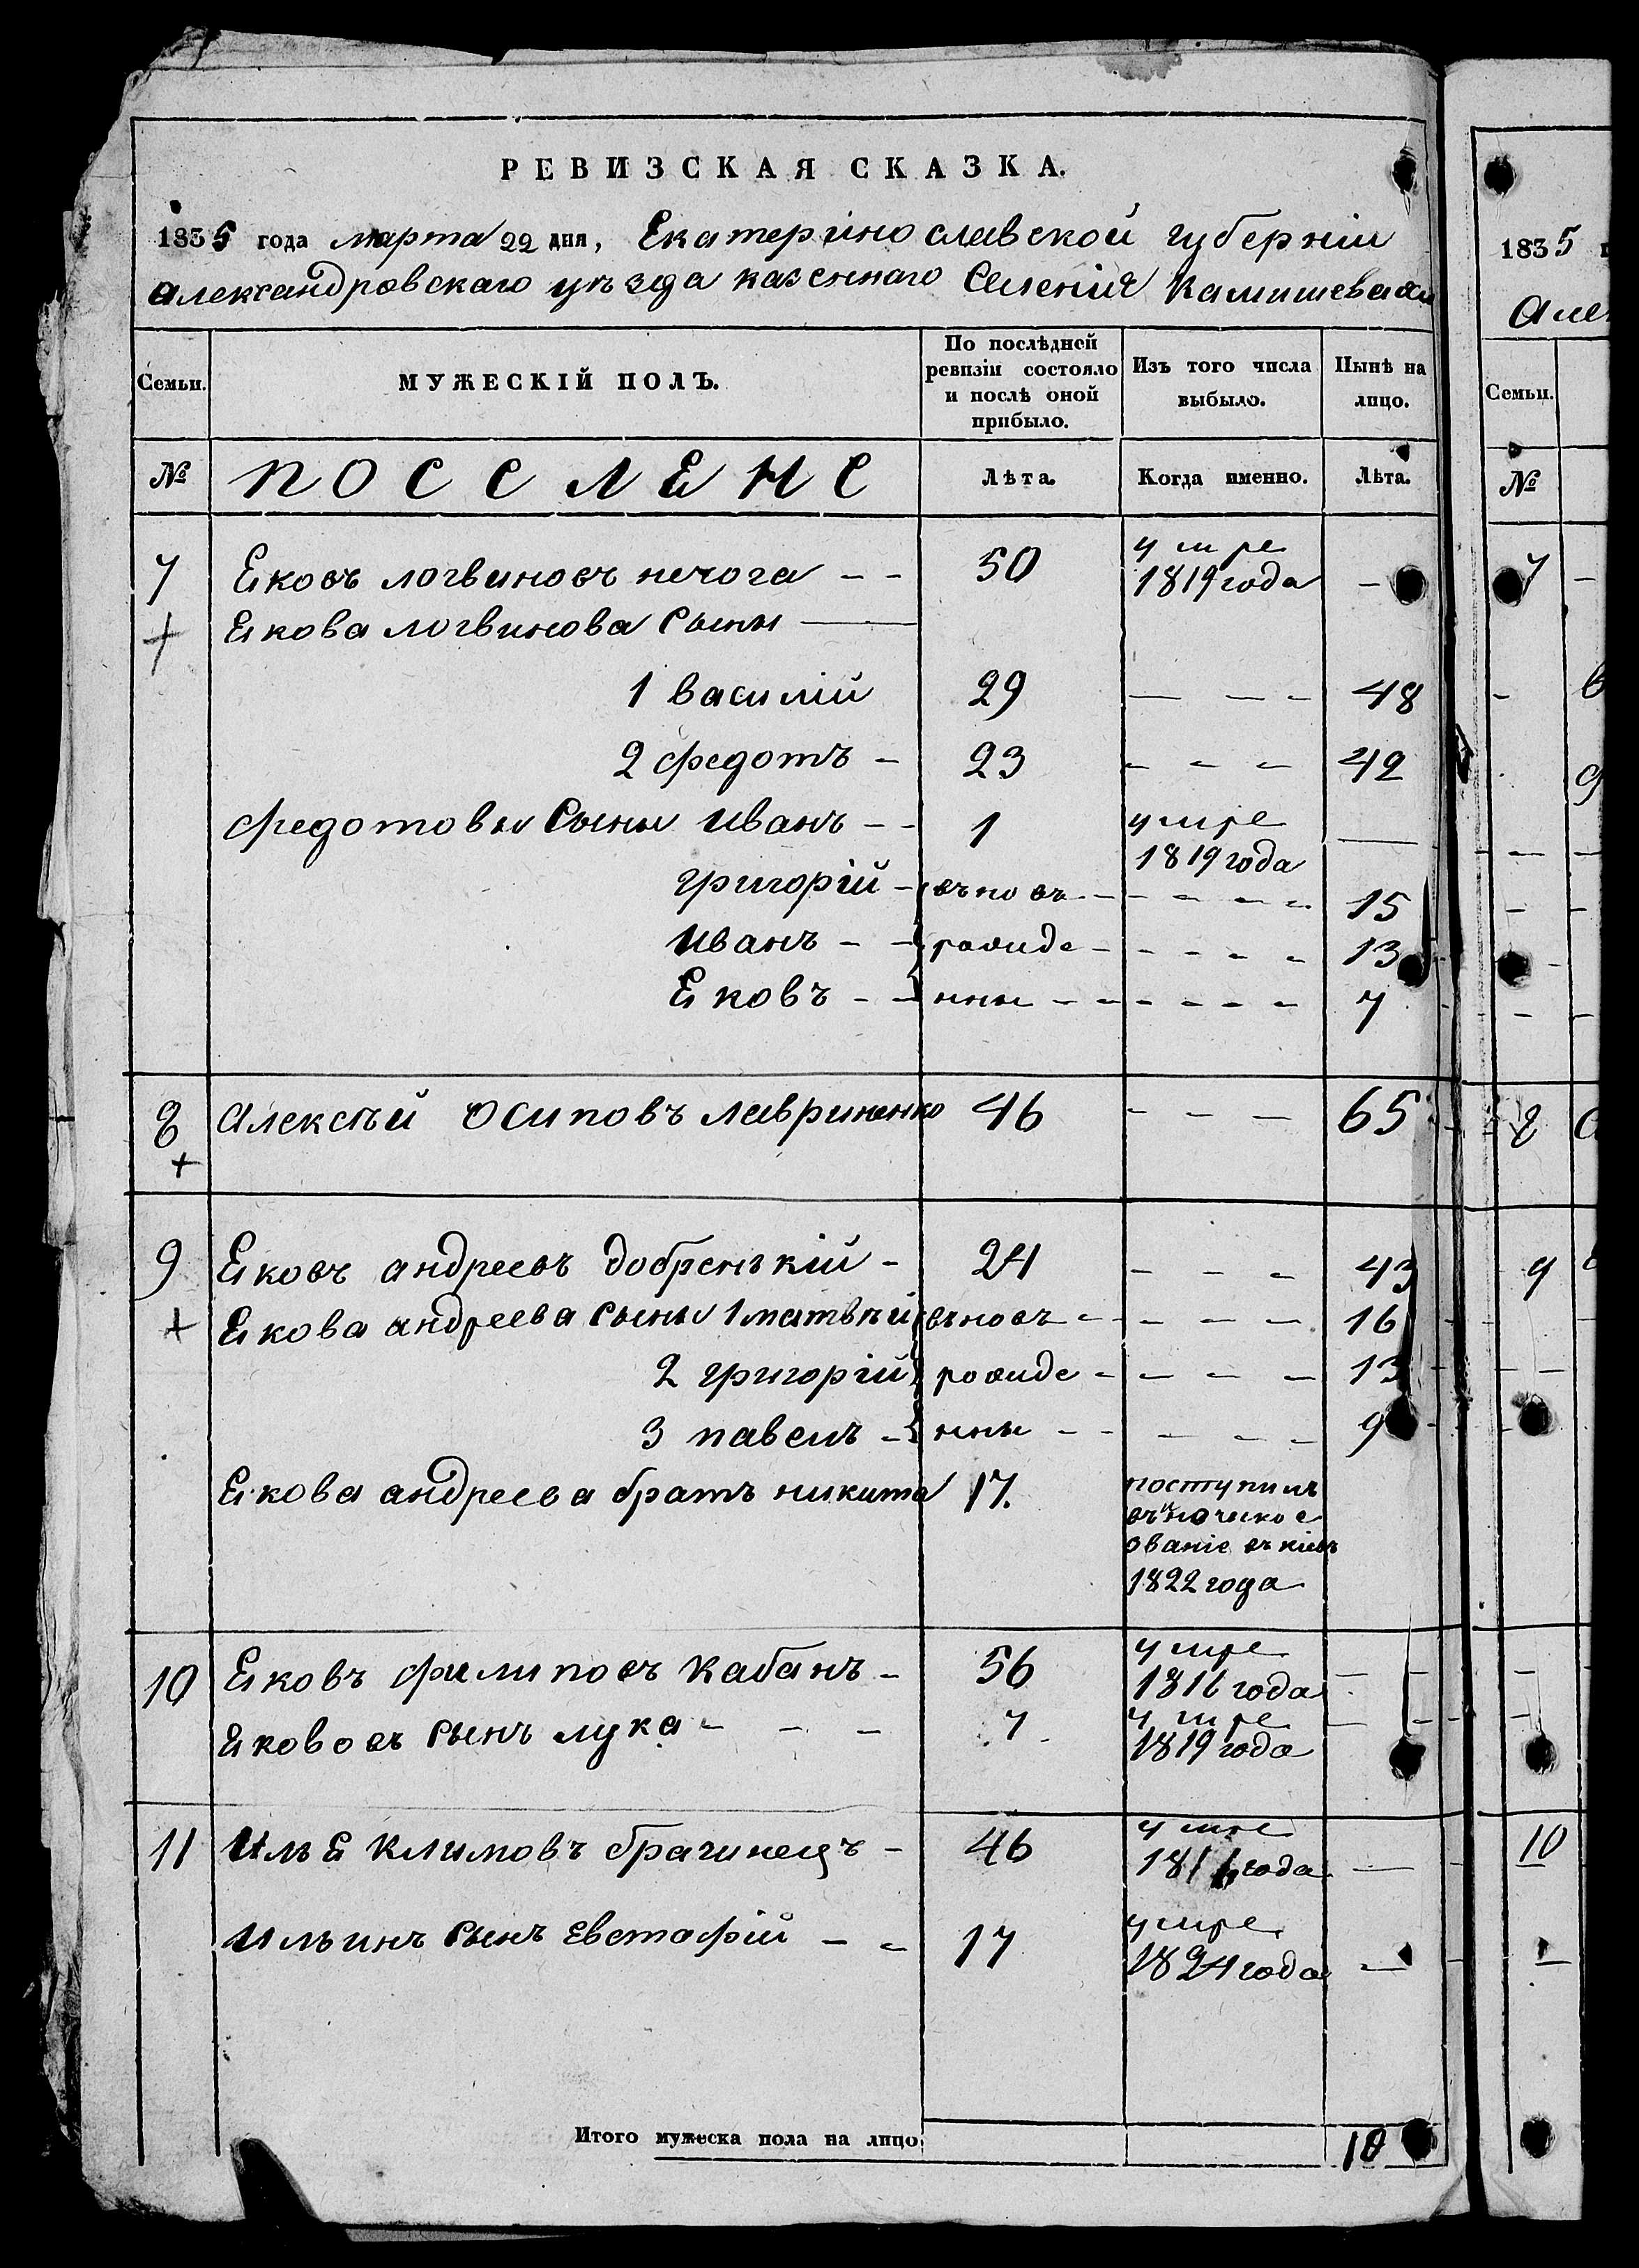 РЕВИЗСКАЯ СКАЗКА.
1835 года марта 22 дня, Екатериіно славской губерніи
Александровскаго уѣзда казеннаго Селенія Камишевахи
Семьи. МУЖЕСКІЙ ПОЛЪ. По послѣдней ревизіи состояло и послѣ оной прибыло. Изъ того числа выбыло. Нынѣ на лицо.
№ ПОССЛЕНЕ Лѣта. Когда именно. Лѣта.
7 Ековъ логвиновъ нечога – – 50 умре 1819 года –
+ Екова логвинова Сыны —
1 василій 29 — – – 48
2 федотъ – 23 – – – 42
федотовы Сыны иванъ – – 1 умре 1819 года —
григорій – вновь – – – – – 15
иванъ – – рожде – – – – – 13
Ековъ – – нны – – – – – – 7
8 Алексѣй Осиповъ лавриненко 46 – – — 65
+
9 Ековъ андреевъ добренькій – 24 – – – 43
+ Екова андреева Сыны 1 матвѣй вновь – – – – – 16
2 григорій рожде – – – – 13
3 павелъ – нны – – – – – 9
Екова андреева братъ никита 17. поступилъ
званіе въ кіевъ
1822 года
10 Ековъ филиповъ Кабанъ – 56 умре 1816 года –
Ековъвъ Сынъ лука – – – 7 умре 1819 года –
11 Илья Климовъ брагинецъ – 46 умре 1816 года —
Ильинъ Сынъ Евстафій – – 17 умре 1824 года —
Итого мужеска пола на лицо. 10
1835
Алек
Семьи.
№
7
8
9
10